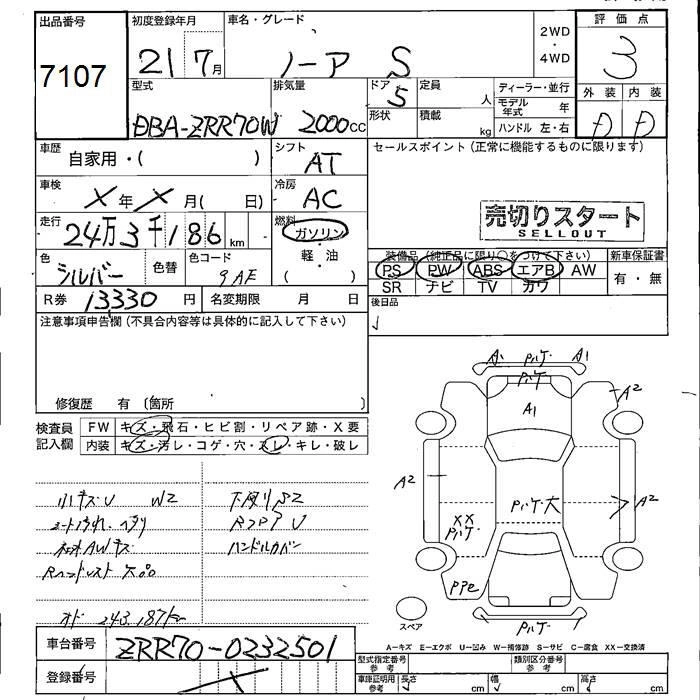 出品番号 初度登録年月 車名・グレード 2WD・4WD 評価点
7107 21 7月 ノーア S 3
型式 排気量 ドア 5 定員 人 ディーラー・並行 外装 内装
DBA-ZRR70W 2000cc 形状 積載 kg モデル年式 年 D D
ハンドル 左・右
車歴 自家用・( ) シフト AT セールスポイント(正常に機能するものに限ります)
車検 X年 X月( 日) 冷房 AC
走行 24万3千186 km 燃料 ガソリン・軽・油 ( )
売切りスタート
SELLOUT
色 シルバー 色替 色コード 9AF
装備品(純正品に限り○をつけて下さい) 新車保証書
PS PW ABS エアB AW 有・無
SR ナビ TV カワ
R券 13330円 名変期限 月 日 後日品
注意事項申告欄(不具合内容等は具体的に記入して下さい)
修復歴 有 〔箇所 〕
検査員記入欄 FW キズ・飛石・ヒビ割・リペア跡・X要
内装 キズ・汚レ・コゲ・穴・スレ・キレ・破レ
小キズU W2 下廻りS2
ハンドルカバー
オド 243,187km
A1 パルケ A1
パルケ
A1
A2
A2
パルケ大
A2
XX
パルケ
パルケ
スペア
A-キズ E-エクボ U-凹み W-補修跡 S-サビ C-腐食 XX-交換済
車台番号 ZRR70-0232501
登録番号
型式指定番号 参考 類別区分番号 参考
車庫証明用 参考 長さ cm 幅 cm 高さ cm